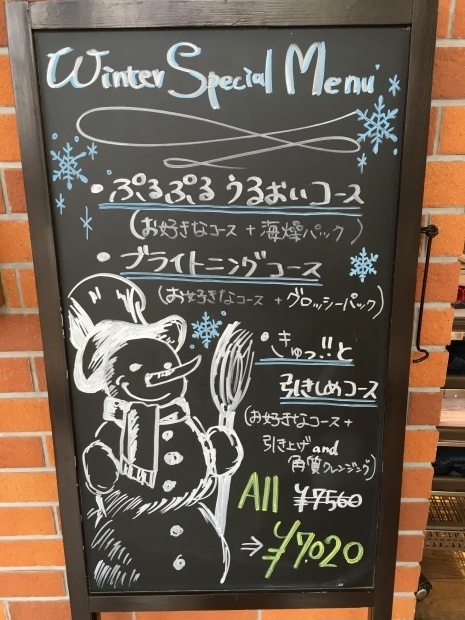 Winter Special Menu
• ぷるぷるうるおいコース
(お好きなコース + 海燥パック)
• ブライトニングコース
(お好きなコース + グロッシーパック)
• きゅっ!!と
引きしめコース
(お好きなコース +
引き上げ and
角質クレンジング)
All ¥7560
⇒ ¥7.020